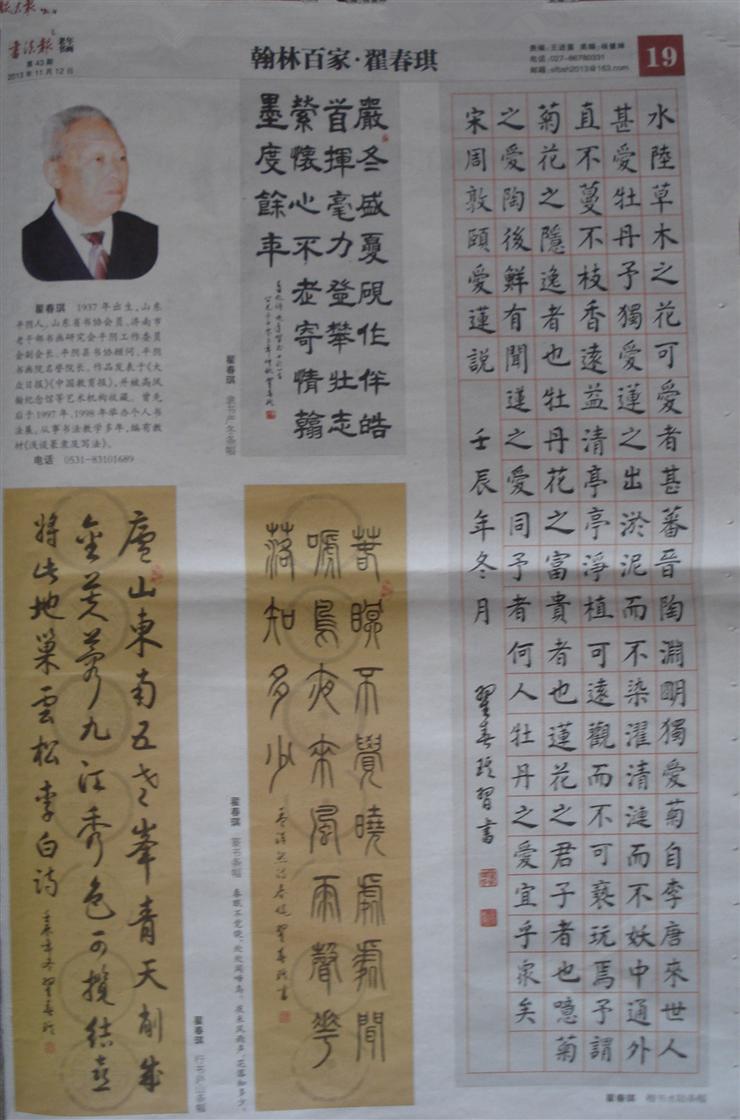 书法报 老年书画
第43期
2013年11月12日
翰林百家·翟春琪
电话:027-86780331
19
翟春琪 1937年出生,山东
平阴人。山东省书协会员、济南市
老干部书画研究会平阴工作委员
会副会长、平阴县书协顾问、平阴
书画院名誉院长。作品发表于《大
众日报》《中国教育报》,并被高凤
翰纪念馆等艺术机构收藏。曾先
后于1997年、1998年举办个人书
法展。从事书法教学多年,编有教
材《浅谈篆隶及写法》。
电话 0531-83101689
嚴冬盛夏硯作伴皓
首揮毫力登攀壯志
縈懷心不老寄情翰
墨度餘年
翟春琪 隶书严冬条幅
水陸草木之花可愛者甚蕃晉陶淵明獨愛菊自李唐來世人
甚愛牡丹予獨愛蓮之出淤泥而不染濯清漣而不妖中通外
直不蔓不枝香遠益清亭亭淨植可遠觀而不可褻玩焉予謂
菊花之隱逸者也牡丹花之富貴者也蓮花之君子者也噫菊
之愛陶後鮮有聞蓮之愛同予者何人牡丹之愛宜乎衆矣
宋周敦頤愛蓮說 壬辰年冬月 翟春琪習書
翟春琪 楷书水陆条幅
廬山東南五老峯青天削成
金芙蓉九江秀色可攬結吾
將此地巢雲松李白詩 壬辰年冬翟春琪
翟春琪 行书庐山条幅
春眠不覺曉處處聞
啼鳥夜來風雨聲花
落知多少
翟春琪 篆书条幅 春眠不觉晓,处处闻啼鸟。夜来风雨声,花落知多少。